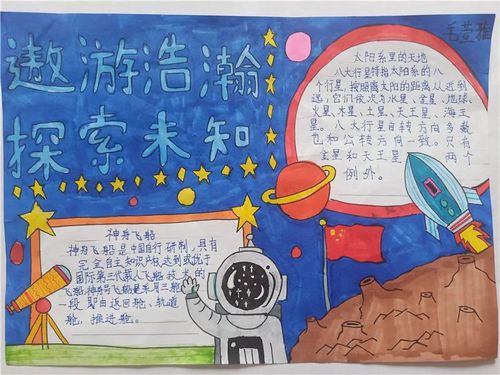 毛萱雅
遨游浩瀚
探索未知
太阳系里的天地
八大行星特指太阳系的八
个行星,按照离太阳的距离从近到
远,它们依次为水星、金星、地球、
火星、木星、土星、天王星、海王
星。八大行星自转方向多数
也和公转方向一致。只有
金星和天王星两个
例外。
神舟飞船
神舟飞船是中国自行研制,具有
完全自主知识产权,达到或优于
国际第三代载人飞船技术的
飞船。神舟号飞船是采用三舱一
段,即由返回舱、轨道
舱、推进舱。